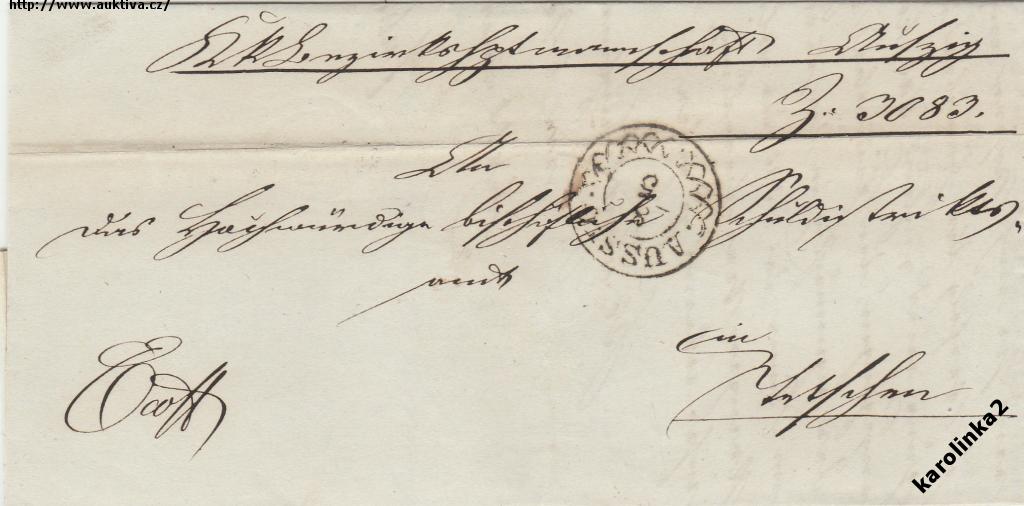 http://www.auktiva.cz/
KK Bezirkshptmannschaft Aussig
Z. 3083.
An
das Hochwürdige bischöfliche Schuldistrikts-
amt
in
Exoff
Tetschen
AUSSIG
karolinka2